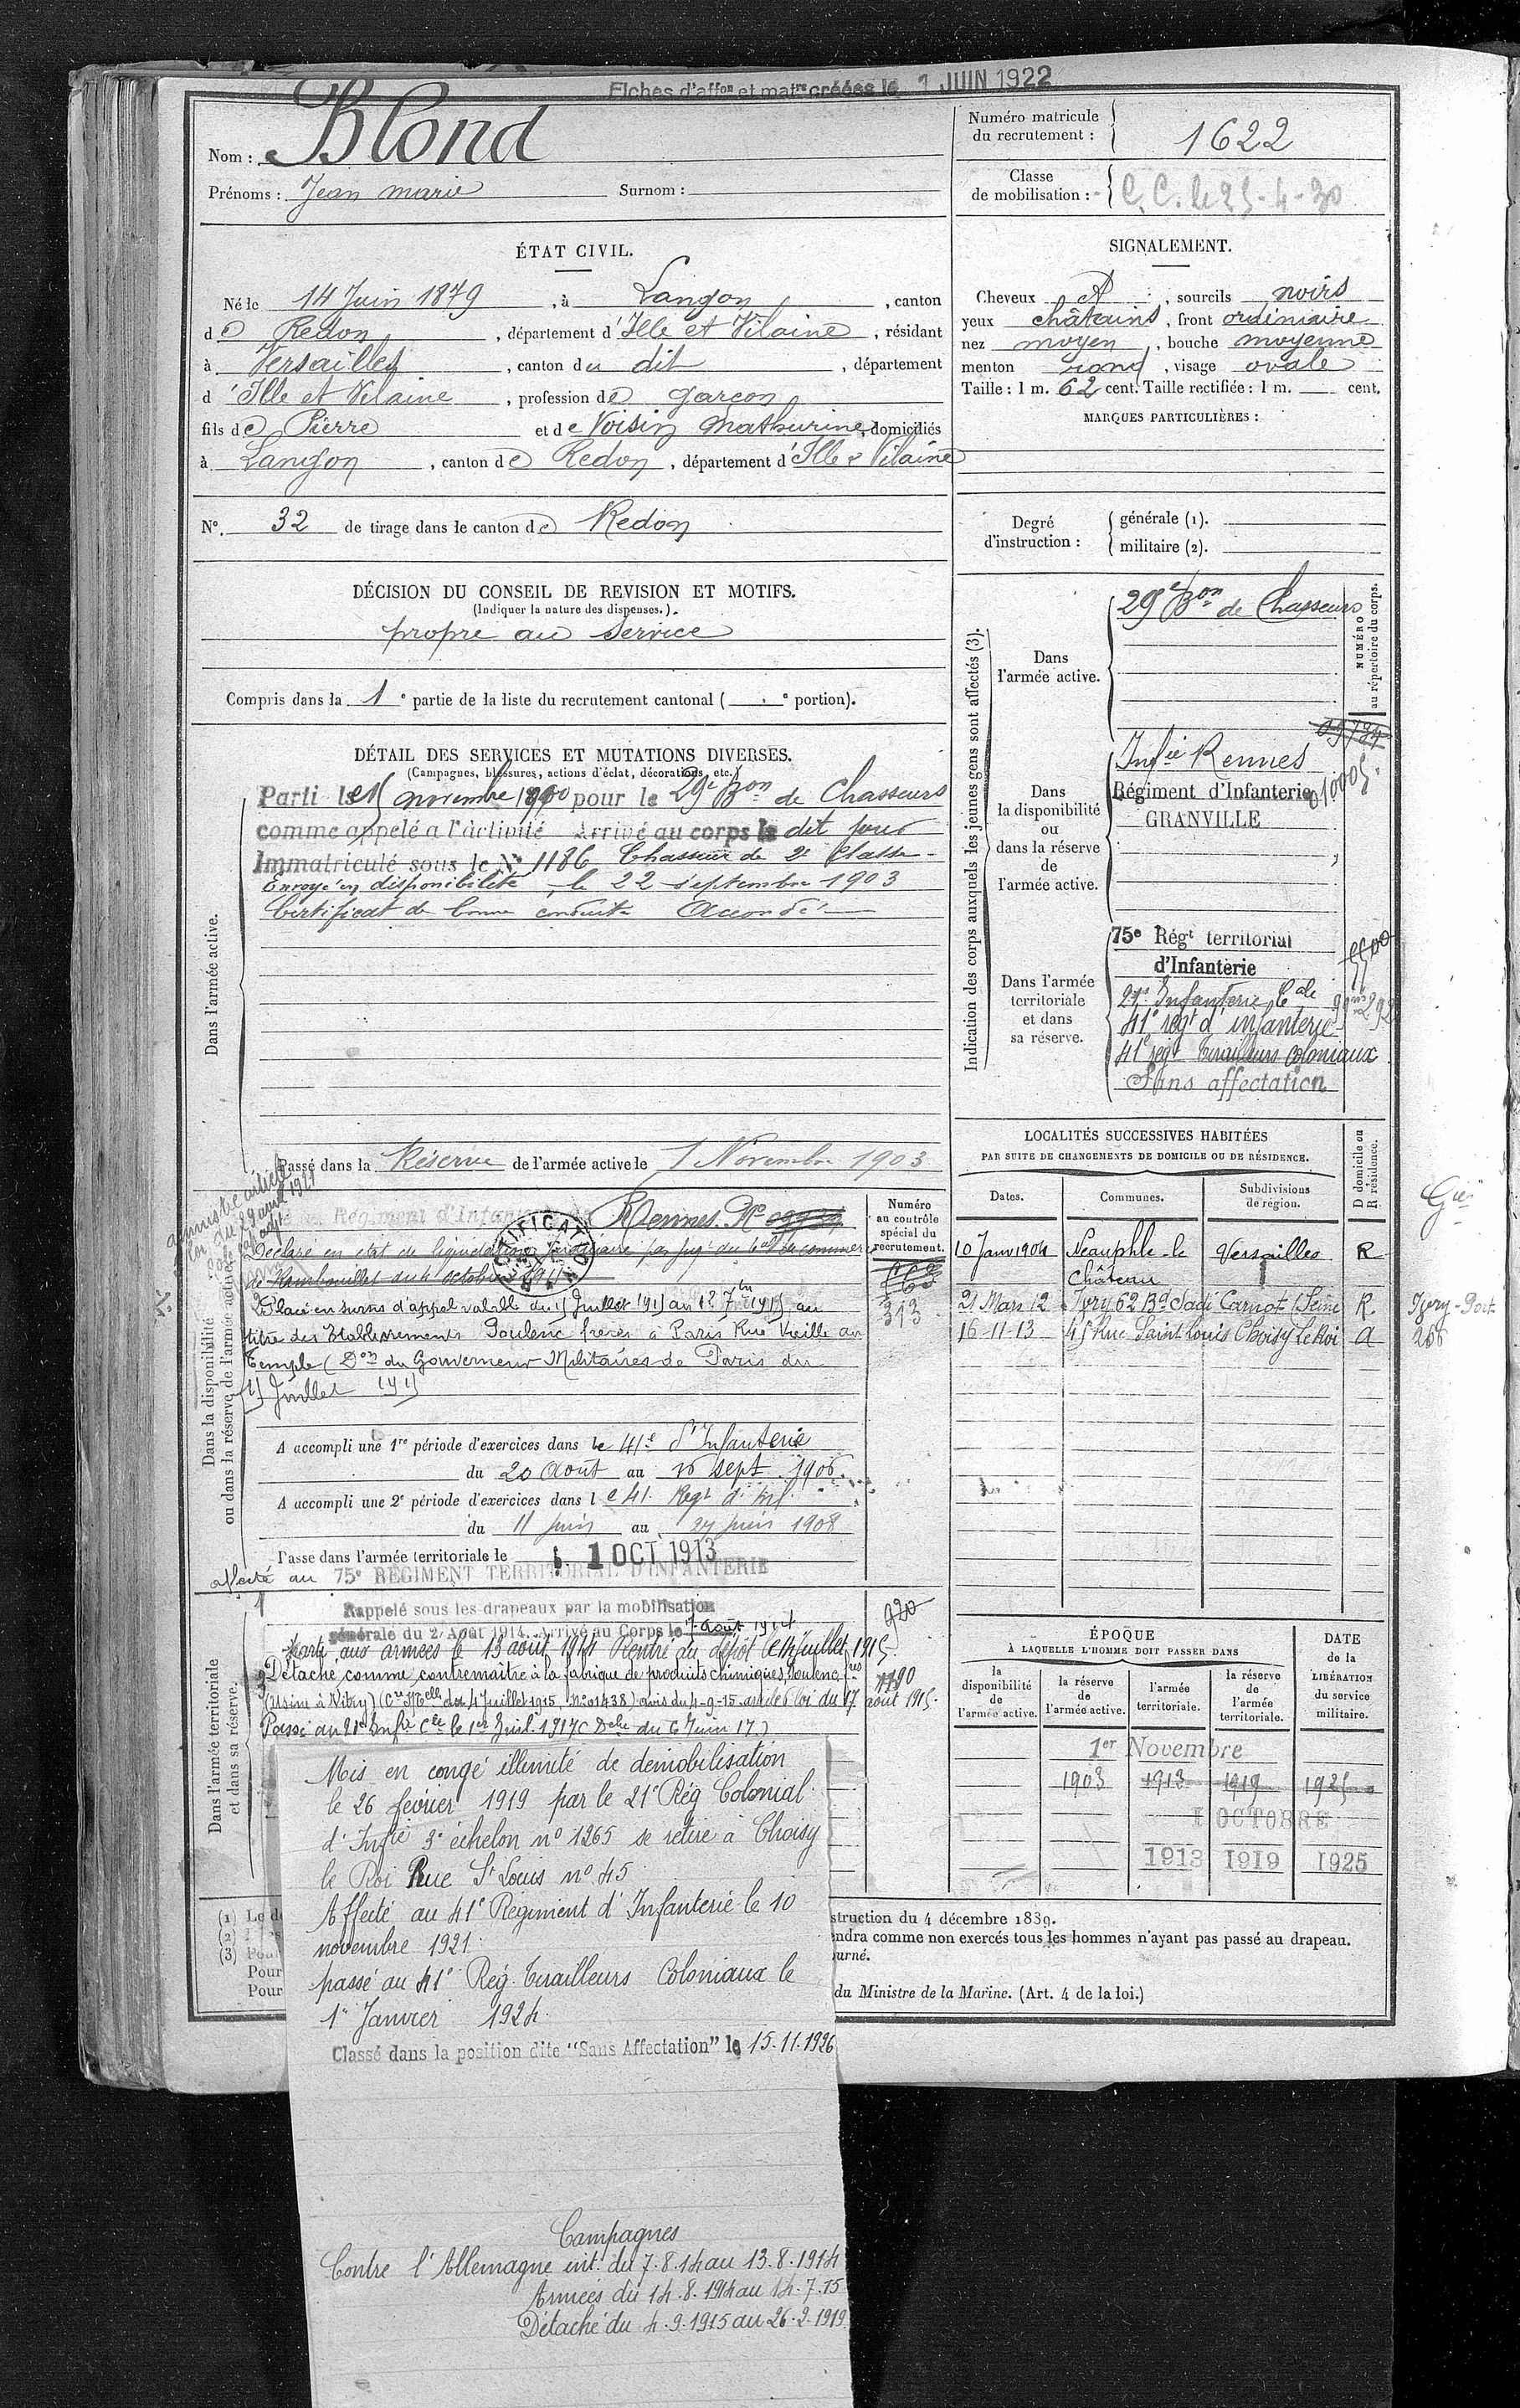 Fiches d'affon et matre créées le 1 JUIN 1922
Nom : Blond
Prénoms : Jean marie Surnom :
Numéro matricule
du recrutement : 1622
Classe
de mobilisation : C. C. le 25-4-30
ÉTAT CIVIL.
Né le 14 Juin 1879, à Langon, canton
de Redon, département d'Ille et Vilaine, résidant
à Versailles, canton du dit, département
d'Ille et Vilaine, profession de garçon
fils de Pierre et de Voisin Mathurine, domiciliés
à Langon, canton de Redon, département d'Ille & Vilaine
No. 32 de tirage dans le canton de Redon
DÉCISION DU CONSEIL DE REVISION ET MOTIFS.
(Indiquer la nature des dispenses.)
propre au service
Compris dans la 1e partie de la liste du recrutement cantonal ( e portion).
SIGNALEMENT.
Cheveux , sourcils noirs
yeux châtains, front ordinaire
nez moyen, bouche moyenne
menton rond, visage ovale
Taille : 1 m. 62 cent. Taille rectifiée : 1 m. cent.
MARQUES PARTICULIÈRES :
Degré
d'instruction :
générale (1).
militaire (2).
DÉTAIL DES SERVICES ET MUTATIONS DIVERSES.
(Campagnes, blessures, actions d'éclat, décorations, etc.)
Dans l'armée active.
Parti le 15 novembre 1900 pour le 29e Bon de Chasseurs
comme appelé a l'activité Arrivé au corps le dit jour
Immatriculé sous le No 1186 Chasseur de 2e classe
Envoyé en disponibilité le 22 septembre 1903
Certificat de bonne conduite Accordé
Passé dans la Réserve de l'armée active le 1 Novembre 1903
Indication des corps auxquels les jeunes gens sont affectés (3).
NUMÉRO
au répertoire du corps.
Dans
l'armée active.
29e Bon de Chasseurs
Dans
la disponibilité
ou
dans la réserve
de
l'armée active.
Infie Rennes
Régiment d'Infanterie
GRANVILLE
Dans l'armée
territoriale
et dans
sa réserve.
75e Régt territorial
d'Infanterie
21e Infanterie Cale
41e régt d'infanterie
41e régt Tirailleurs Coloniaux
Sans affectation
LOCALITÉS SUCCESSIVES HABITÉES
PAR SUITE DE CHANGEMENTS DE DOMICILE OU DE RÉSIDENCE.
Dates. Communes. Subdivisions de région. D domicile ou R. résidence.
10 Janv 1904 Neauphle-le Château Versailles R
21 Mars 12 Ivry 62 Bd Sadi Carnot (Seine R.
16-11-13 45 Rue Saint Louis Choisy Le Roi
Dans la disponibilité
ou dans la réserve de l'armée active.
amnistié article
loi du 29 avril 1921
Régiment d'infanterie de Rennes.
Numéro
au contrôle
spécial du
recrutement.
313
Déclaré en état de liquidation judiciaire par jugt du tal de commerce
de Rambouillet du 6 octobre
Placé en sursis d'appel valable du 15 Juillet 1915 au 12 7bre 1915 au
titre des Etablissements Poulenc frères à Paris Rue Vieille du
Temple (Don du Gouverneur Militaires de Paris du
15 Juillet 1915
A accompli une 1re période d'exercices dans le 41e d'Infanterie
du 20 Août au 16 sept. 1906.
A accompli une 2e période d'exercices dans le 41. Regt d'Inf.
du 11 juin au 27 juin 1908
Passé dans l'armée territoriale le 1 OCT 1913
affecté au 75e RÉGIMENT TERRITORIAL D'INFANTERIE
Dans l'armée territoriale
et dans sa réserve.
Rappelé sous les drapeaux par la mobilisation
générale du 2 Août 1914. Arrivé au Corps le 7 août 1914
920
Parti aux armées le 13 août 1914 Rentré au dépôt le 14 Juillet 1915.
Détaché comme contremaître à la fabrique de produits chimiques Poulenc fres
(usine à Vitry) (Cre Melle du 4 Juillet 1915 No 01438) avis du 4-9-15 loi du 17 août 1915.
Passé au 21e Infie Cle le 1er Juil. 1917 (Dche du 6 Juin 17)
Mis en congé illimité de démobilisation
le 26 février 1919 par le 21e Rég Colonial
d'Infie 3e échelon no 1265 se retire à Choisy
le Roi Rue St Louis no 45
Affecté au 41e Régiment d'Infanterie le 10
novembre 1921.
passé au 41e Rég. Tirailleurs Coloniaux le
1er Janvier 1924.
Classé dans la position dite "Sans Affectation" le 15.11.1926
Campagnes
Contre l'Allemagne int. du 7.8.14 au 13.8.1914
Armées du 14.8.1914 au 14.7.15
Détaché du 4.9.1915 au 26.2.1919
ÉPOQUE
À LAQUELLE L'HOMME DOIT PASSER DANS
la disponibilité de l'armée active. la réserve de l'armée active. l'armée territoriale. la réserve de l'armée territoriale.
DATE
de la
LIBÉRATION
du service
militaire.
1er Novembre
1903 1913 1919 1925
1 OCTOBRE
1913 1919 1925
(1) Le d
(2)
(3) Pour
Pour
Pour
struction du 4 décembre 1889.
endra comme non exercés tous les hommes n'ayant pas passé au drapeau.
ourné.
du Ministre de la Marine. (Art. 4 de la loi.)
Ivry-Port